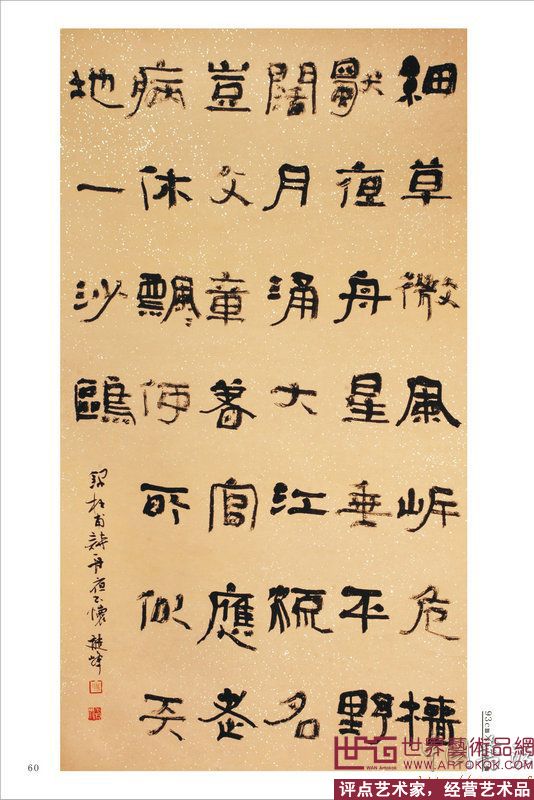 細草微風岸危檣
獨夜舟星垂平野
闊月涌大江流名
豈文章著官應老
病休飄〻何所似天
地一沙鷗
錄杜甫詩
60
93cm
世界藝術品網
WWW.ARTOKOK.COM
评点艺术家，经营艺术品